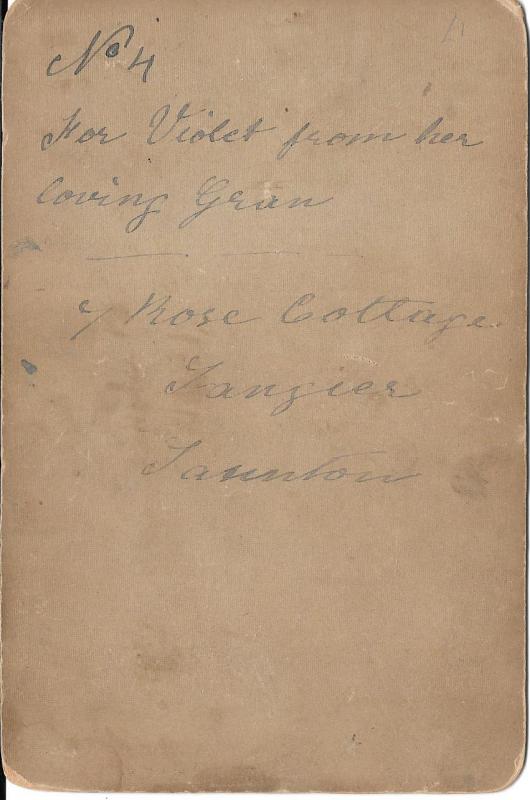 No 4
For Violet from her
loving Gran
7 Rose Cottage
Tangier
Taunton